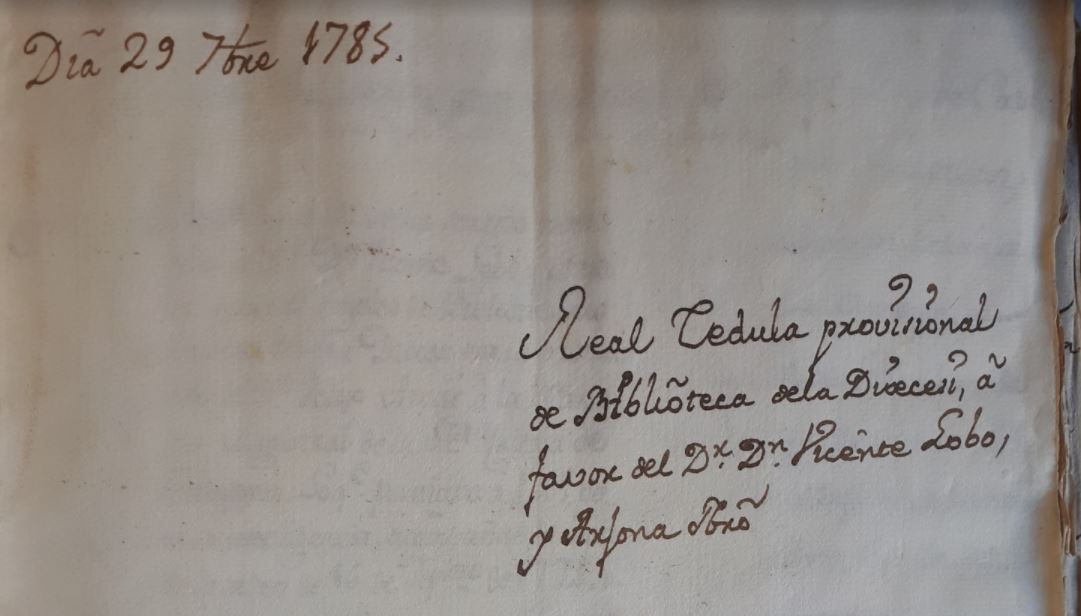 Dia 29 7bre 1785.
Real Cedula provisional
de Bibliõteca dela Diocesi, ã
favor del Dr. Dn. Vicênte Lobo,
y Arjona Pbrõ